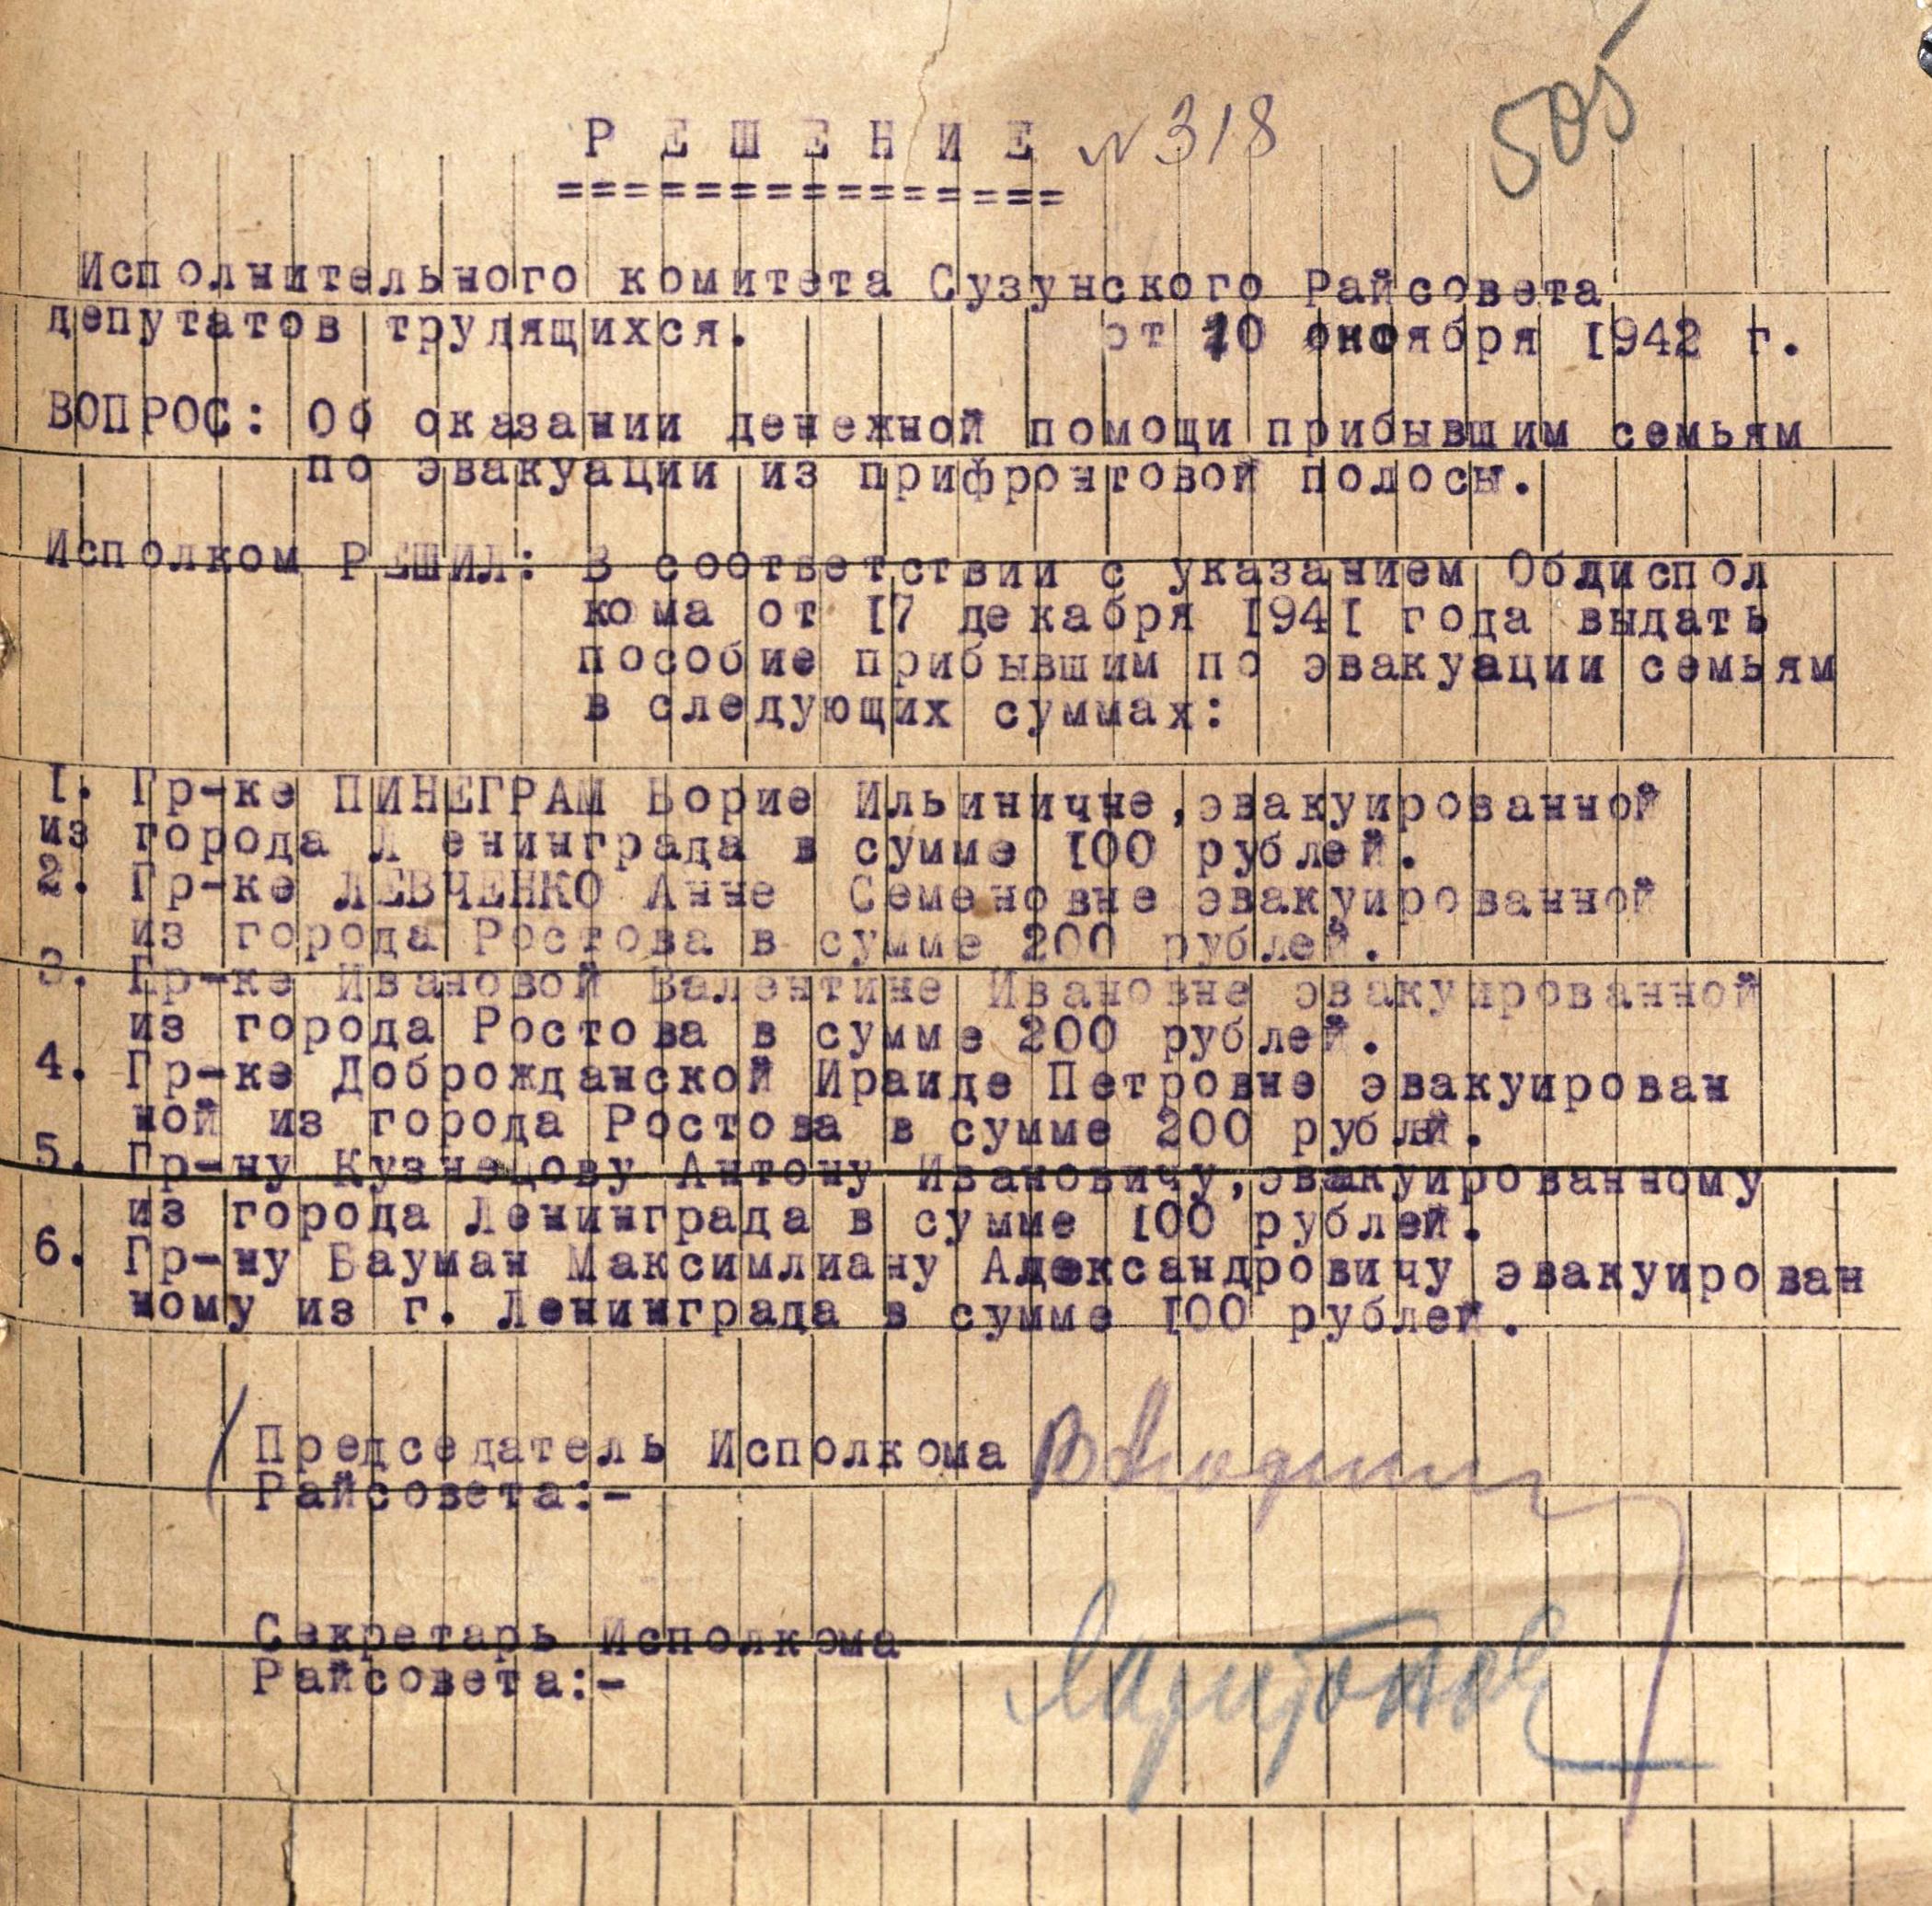 505
Р Е Ш Е Н И Е № 318
===============
Исполнительного комитета Сузунского Райсовета
депутатов трудящихся. от 10 октября 1942 г.
ВОПРОС: Об оказании денежной помощи прибывшим семьям
по эвакуации из прифронтовой полосы.
Исполком РЕШИЛ: В соответствии с указанием Облиспол
кома от 17 декабря 1941 года выдать
пособие прибывшим по эвакуации семьям
в следующих суммах:
1. Гр-ке ПИНЕГРАМ Борие Ильиничне,эвакуированной
из города Л енинграда в сумме 100 рублей.
2. Гр-ке ЛЕВЧЕНКО Анне Семеновне эвакуированной
из города Ростова в сумме 200 рублей.
3. Гр-ке Ивановой Валентине Ивановне эвакуированной
из города Ростова в сумме 200 рублей.
4. Гр-ке Доброжданской Ираиде Петровне эвакуирован
ной из города Ростова в сумме 200 рублй.
5. Гр-ну Кузнецову Антону Ивановичу,эвакуированному
из города Ленинграда в сумме 100 рублей.
6. Гр-ну Бауман Максимлиану Александровичу эвакуирован
ному из г. Ленинграда в сумме 100 рублей.
Председатель Исполкома
Райсовета:-
Секретарь Исполкома
Райсовета:- Харитонов